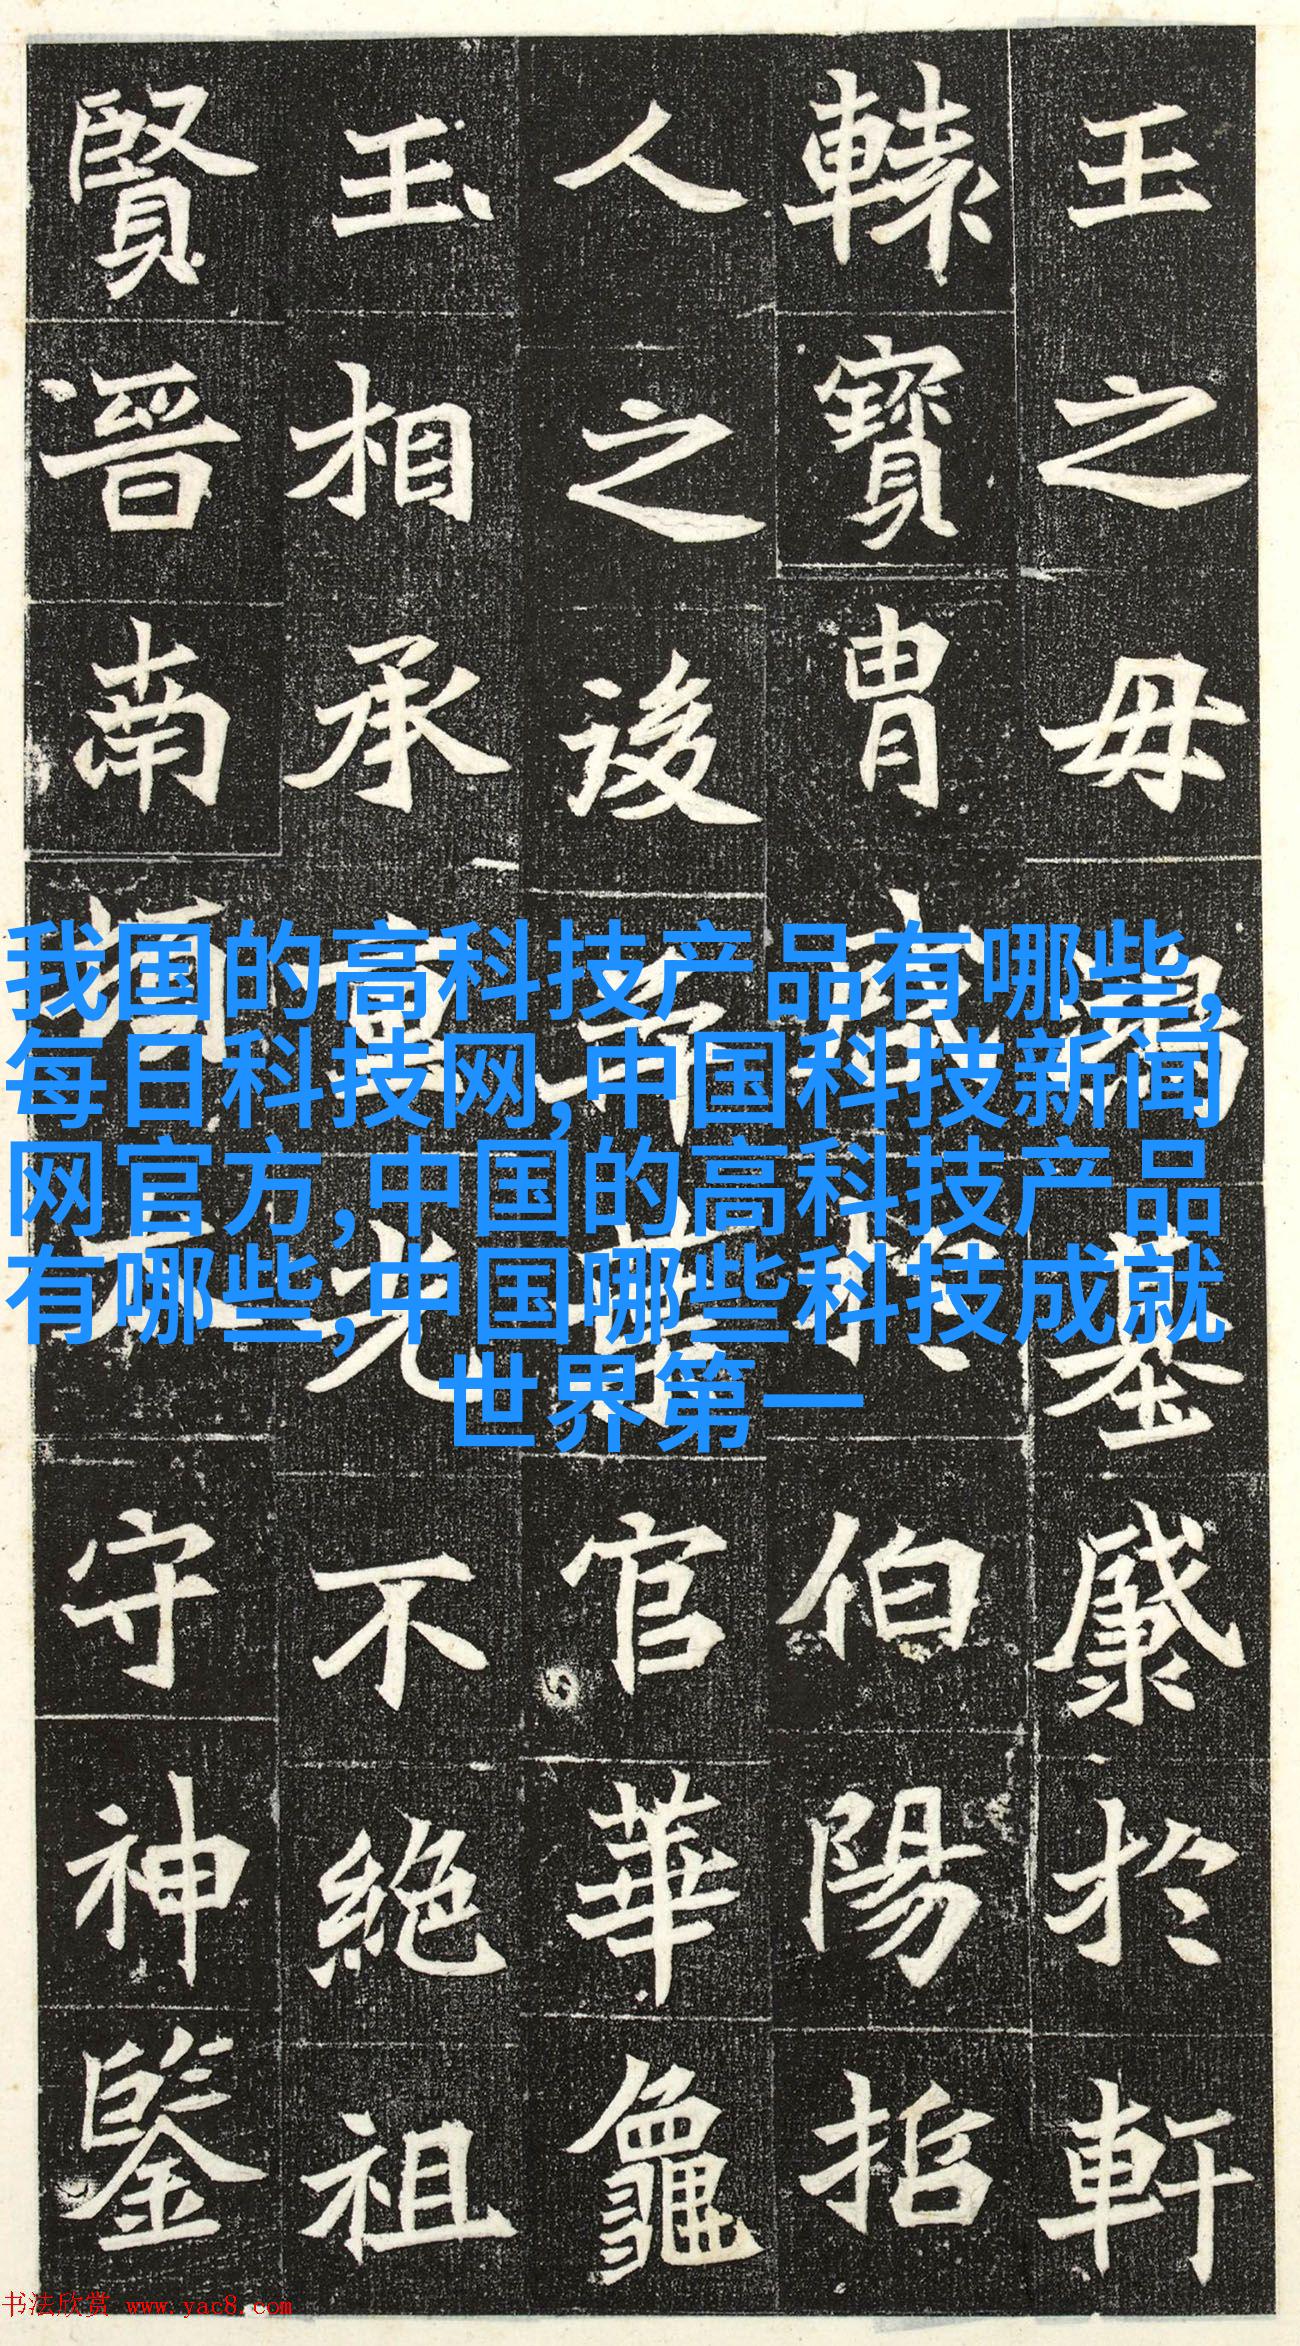 王之毋於軒
轅寶胄於伯陽
人之後官華龜
玉相承重光不絕祖
賢晉南頓太守神鑒
我国的高科技产品有哪些,
每日科技网,中国科技新闻
网官方,中国的高科技产品
有哪些,中国哪些科技成就
世界第一
书法欣赏 www.yac8.com